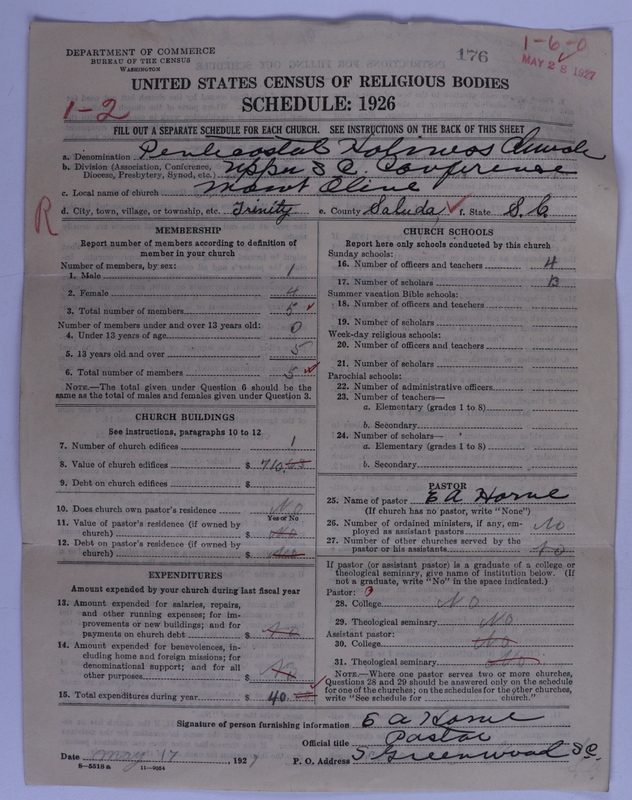 DEPARTMENT OF COMMERCE
BUREAU OF THE CENSUS
WASHINGTON
176
1-6-0
MAY 28 1927
UNITED STATES CENSUS OF RELIGIOUS BODIES
SCHEDULE: 1926
1-2
FILL OUT A SEPARATE SCHEDULE FOR EACH CHURCH. SEE INSTRUCTIONS ON THE BACK OF THIS SHEET
a. Denomination Pentecostal Holiness Church
b. Division (Association, Conference, Diocese, Presbytery, Synod, etc.) Upper S C. Conference
c. Local name of church Mount Olive
d. City, town, village, or township, etc. Trinity e. County Saluda f. State S. C.
R
MEMBERSHIP
Report number of members according to definition of
member in your church
Number of members, by sex:
1. Male 1
2. Female 4
3. Total number of members 5
Number of members under and over 13 years old:
4. Under 13 years of age 0
5. 13 years old and over 5
6. Total number of members 5
NOTE.—The total given under Question 6 should be the
same as the total of males and females given under Question 3.
CHURCH BUILDINGS
See instructions, paragraphs 10 to 12
7. Number of church edifices 1
8. Value of church edifices $ 710.
9. Debt on church edifices $
10. Does church own pastor's residence No
Yes or No
11. Value of pastor's residence (if owned by
church) $ No
12. Debt on pastor's residence (if owned by
church) $ No
EXPENDITURES
Amount expended by your church during last fiscal year
13. Amount expended for salaries, repairs,
and other running expenses; for im-
provements or new buildings; and for
payments on church debt $ No
14. Amount expended for benevolences, in-
cluding home and foreign missions; for
denominational support; and for all
other purposes $ No
15. Total expenditures during year $ 40.
CHURCH SCHOOLS
Report here only schools conducted by this church
Sunday schools:
16. Number of officers and teachers 4
17. Number of scholars 13
Summer vacation Bible schools:
18. Number of officers and teachers
19. Number of scholars
Week-day religious schools:
20. Number of officers and teachers
21. Number of scholars
Parochial schools:
22. Number of administrative officers
23. Number of teachers—
a. Elementary (grades 1 to 8)
b. Secondary
24. Number of scholars—
a. Elementary (grades 1 to 8)
b. Secondary
PASTOR
25. Name of pastor E A Horne
(If church has no pastor, write "None")
26. Number of ordained ministers, if any, em-
ployed as assistant pastors No
27. Number of other churches served by the
pastor or his assistants No
If pastor (or assistant pastor) is a graduate of a college or
theological seminary, give name of institution below. (If
not a graduate, write "No" in the space indicated.)
Pastor:
28. College No
29. Theological seminary No
Assistant pastor:
30. College No
31. Theological seminary No
NOTE.—Where one pastor serves two or more churches,
Questions 28 and 29 should be answered only on the schedule
for one of the churches; on the schedules for the other churches,
write "See schedule for church."
Signature of person furnishing information E A Horne
Official title Pastor
Date May 17, 1927 P. O. Address Greenwood S C.
8-5518 a 11-2554